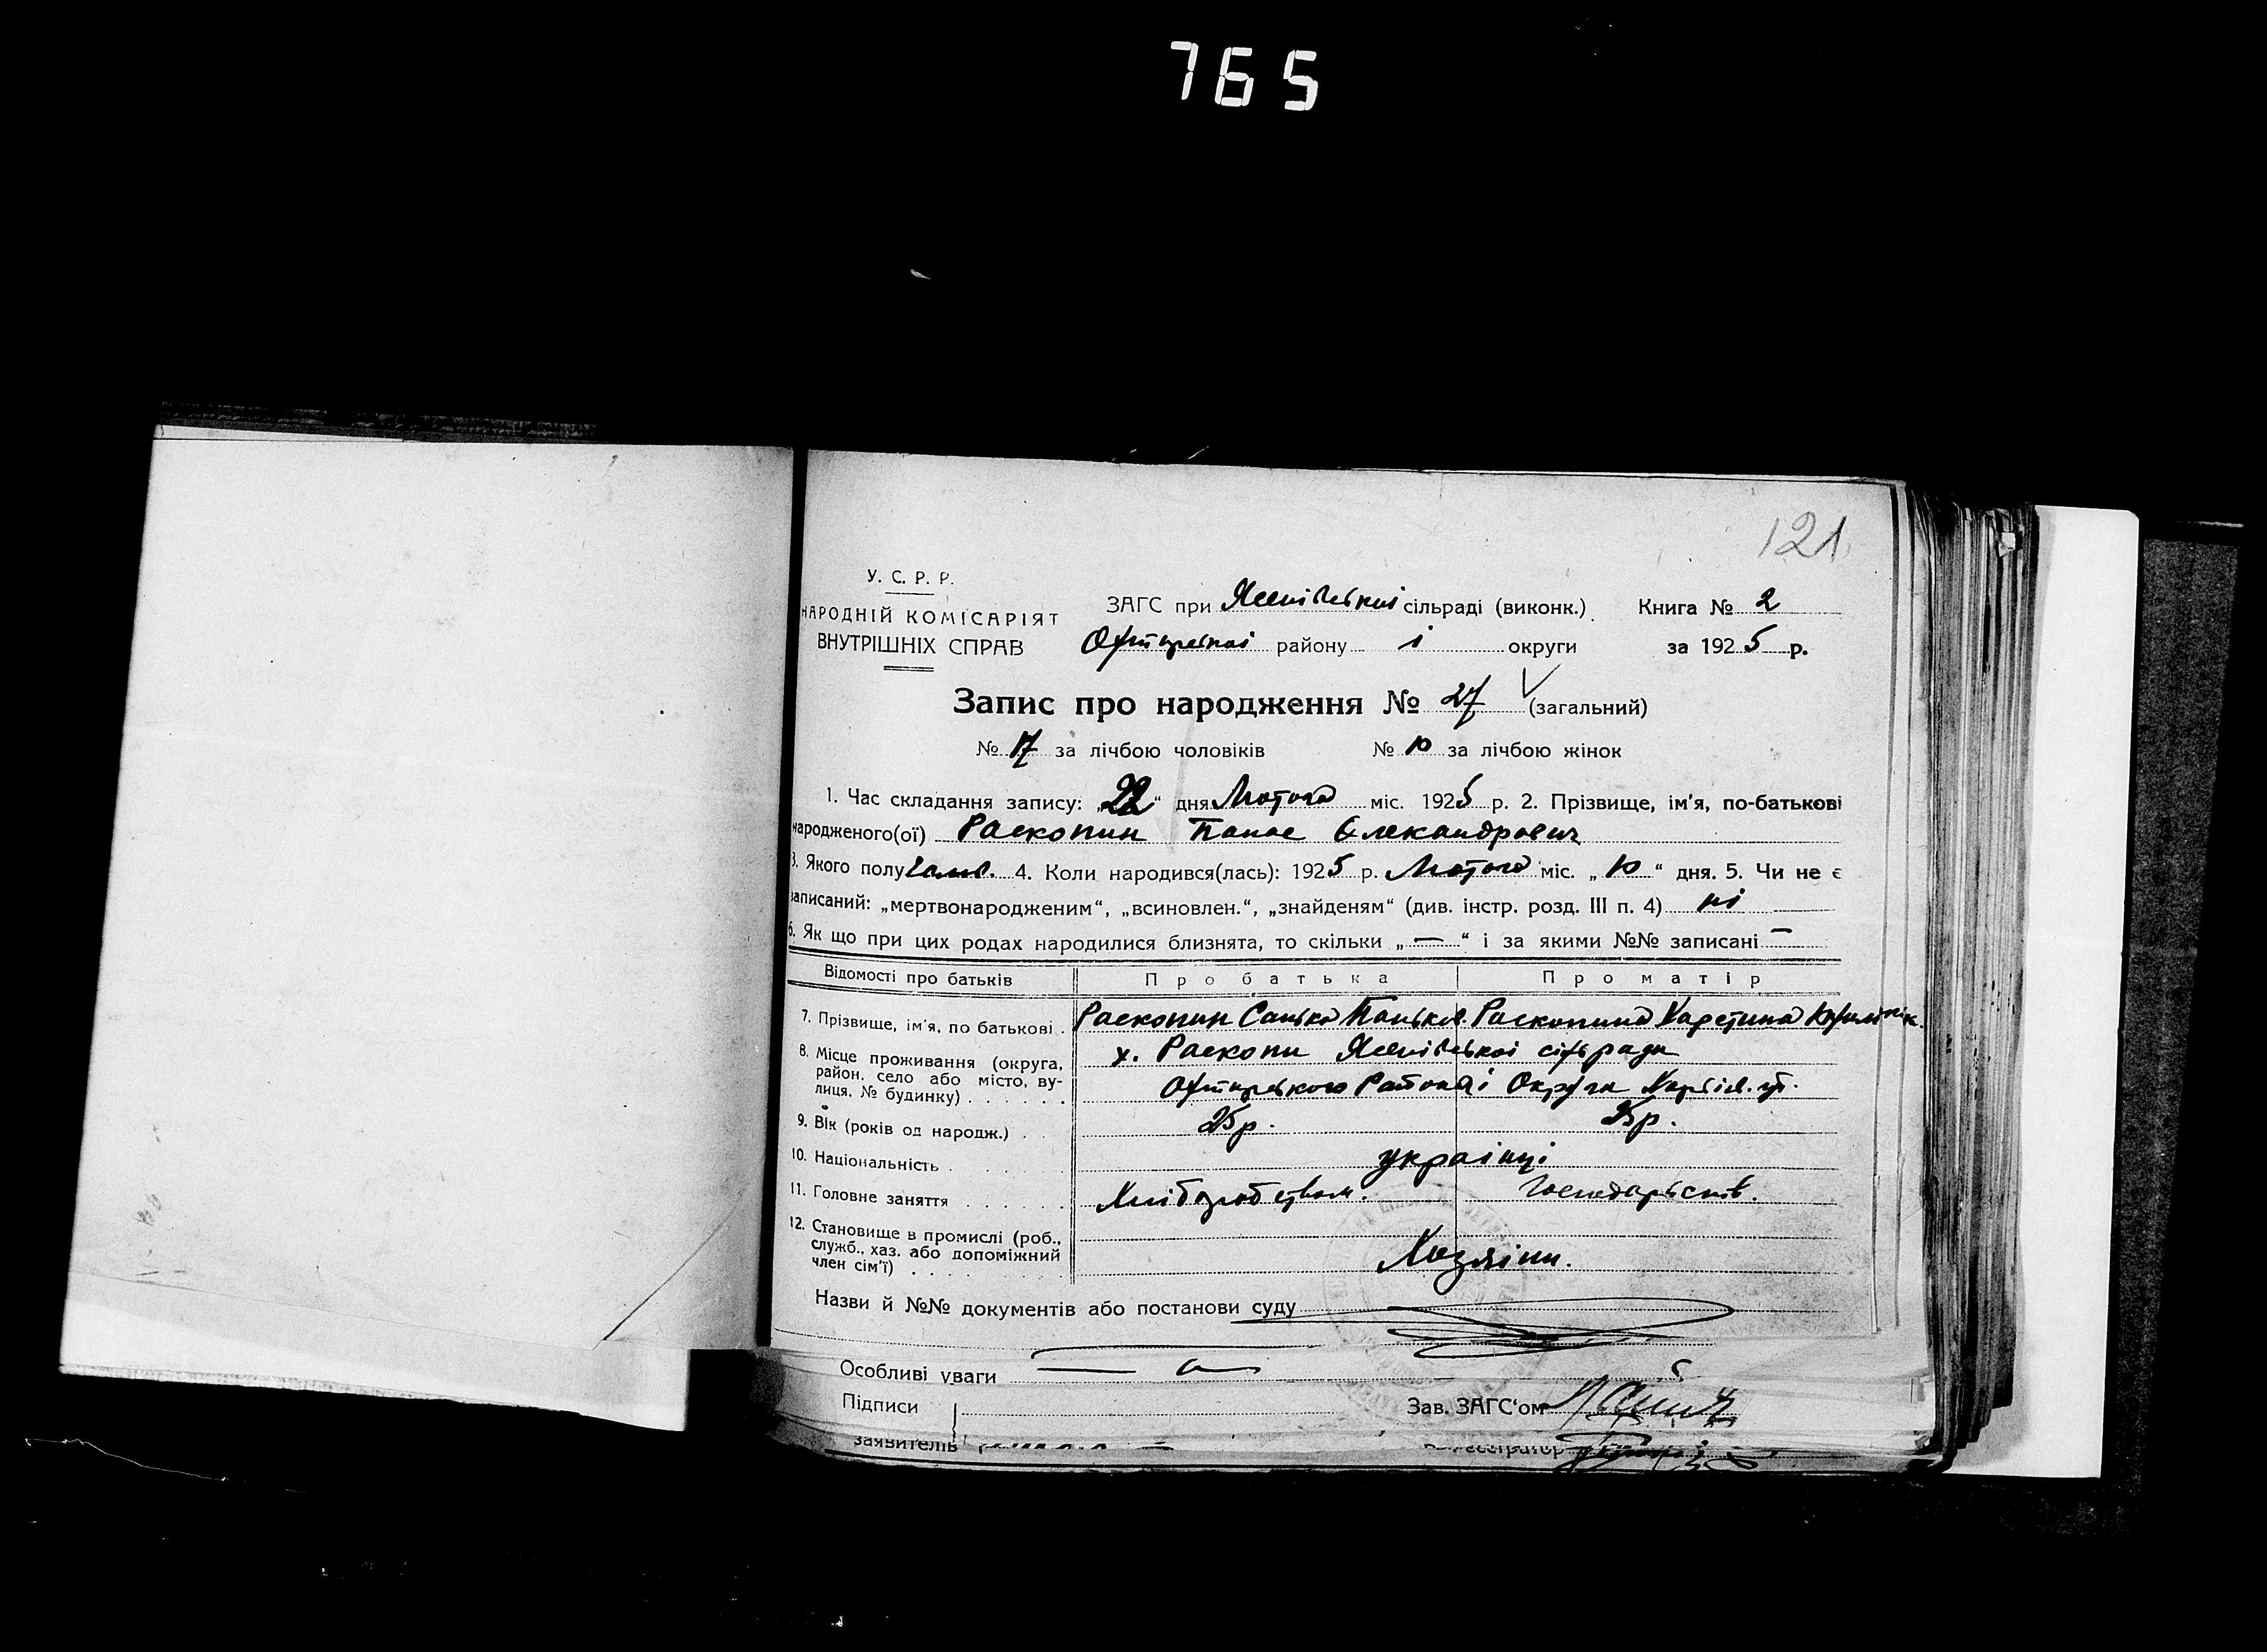 765
121
У. С. Р. Р.
НАРОДНІЙ КОМІСАРІЯТ
ВНУТРІШНІХ СПРАВ
ЗАГС при Ясенівській сільраді (виконк.) Книга № 2
району і округи за 1925 р.
Запис про народження № 27 (загальний)
№ 17 за лічбою чоловіків № 10 за лічбою жінок
1. Час складання запису: „22“ дня Лютого міс. 1925 р. 2. Прізвище, ім'я, по-батькові
народженого(ої) Раскопин Панас Олександрович
3. Якого полу 4. Коли народився(лась): 1925 р. Лютого міс. „10“ дня. 5. Чи не є
записаний: „мертвонародженим“, „всиновлен.“, „знайденям“ (див. інстр. розд. III п. 4) ні
6. Як що при цих родах народилися близнята, то скільки „—“ і за якими №№ записані —
Відомості про батьків Про батька Про матір
7. Прізвище, ім'я, по батькові . Раскопин Санько Паньков. Раскопина Харетина
8. Місце проживання (округа, район, село або місто, вулиця, № будинку) . . . . . . х. Раскопи Ясенівської сільради
Охтирського Району і Округи Харків. губ.
9. Вік (років од народж.) . . 25р. 25р.
10. Національність . . . . українці
11. Головне заняття . . . . . . Хліборобством. Господарств.
12. Становище в промислі (роб., служб., хаз. або допоміжний член сім'ї) . . . . Хазяіни.
Назви й №№ документів або постанови суду
Особливі уваги
Підписи Зав. ЗАГС'ом
заявителів Реєстратор